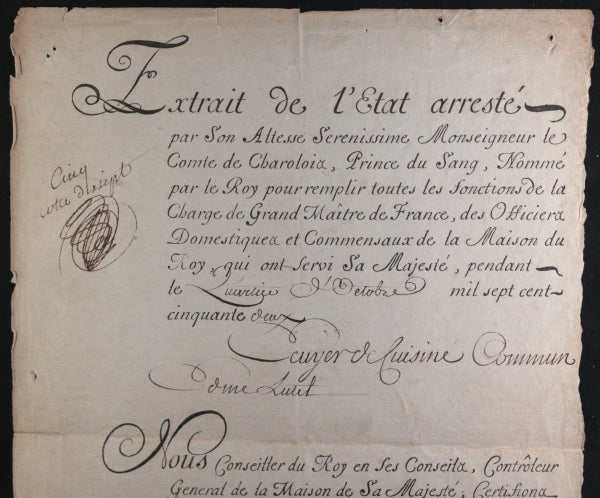 Extrait de l'Etat arresté
par Son Altesse Serenissime Monseigneur le
Comte de Charolois, Prince du Sang, Nommé
par le Roy pour remplir toutes les fonctions de la
Charge de Grand Maître de France, des Officiers
Domestiques et Commensaux de la Maison du
Roy, qui ont servi Sa Majesté, pendant
le Quartier d'Octobre mil sept cent
cinquante deux
Ecuyer de Cuisine Commun
Cinq
Nous Conseiller du Roy en ses Conseils, Contrôleur
General de la Maison de Sa Majesté, Certifions